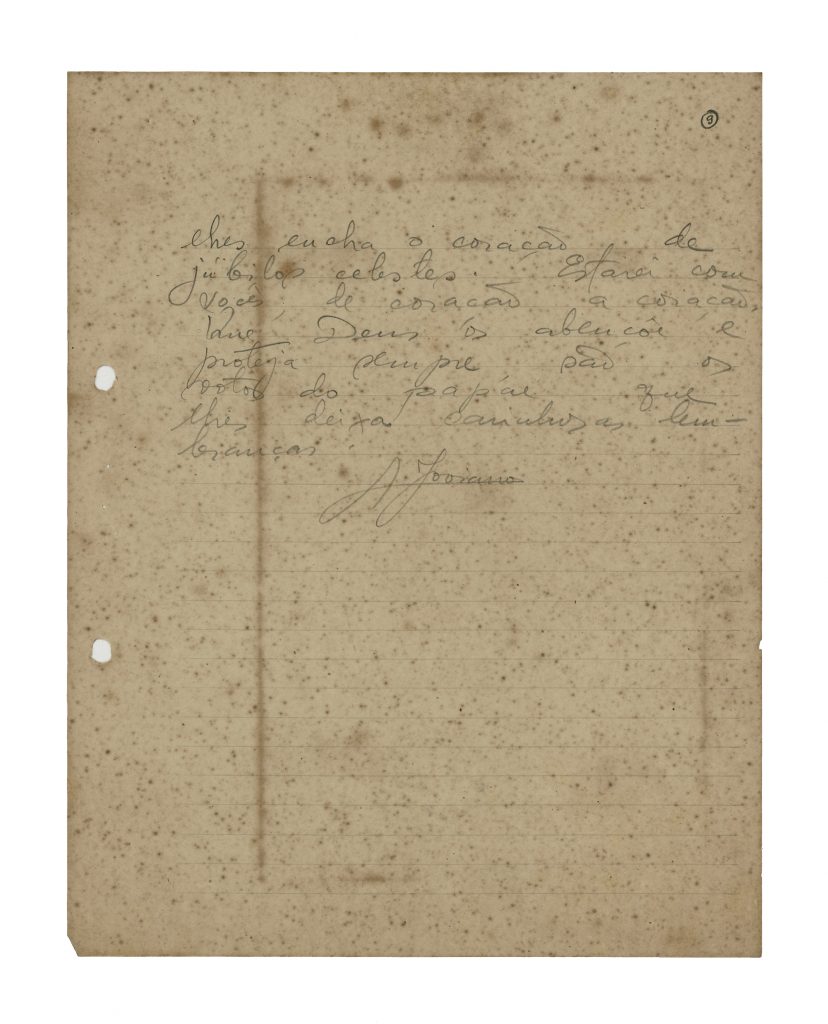 9
lhes encha o coração de
júbilos celestes. Estarei com
vocês, de coração a coração.
Que Deus os abençôe e
proteja sempre são os
votos do papae que
lhes deixa carinhosas lem-
branças.